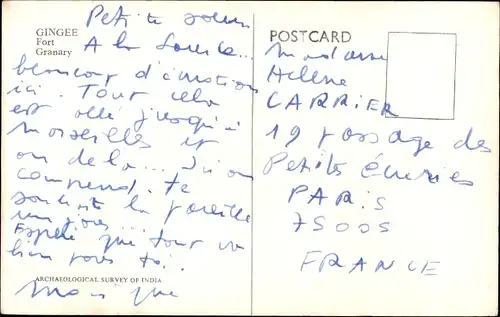 GINGEE
Fort
Granary
Petite soeur
A la source...
beaucoup d'émotions
ici. Tout cela
est allé jusqu'à
Marseille et
au delà...
comprend. Te
souhaite la pareille
un jour...
que tout va
bien pour toi.
ARCHAEOLOGICAL SURVEY OF INDIA
POSTCARD
Madame
Hélène
CARRIER
19 passage des
Petits Écuries
PARIS
75005
FRANCE